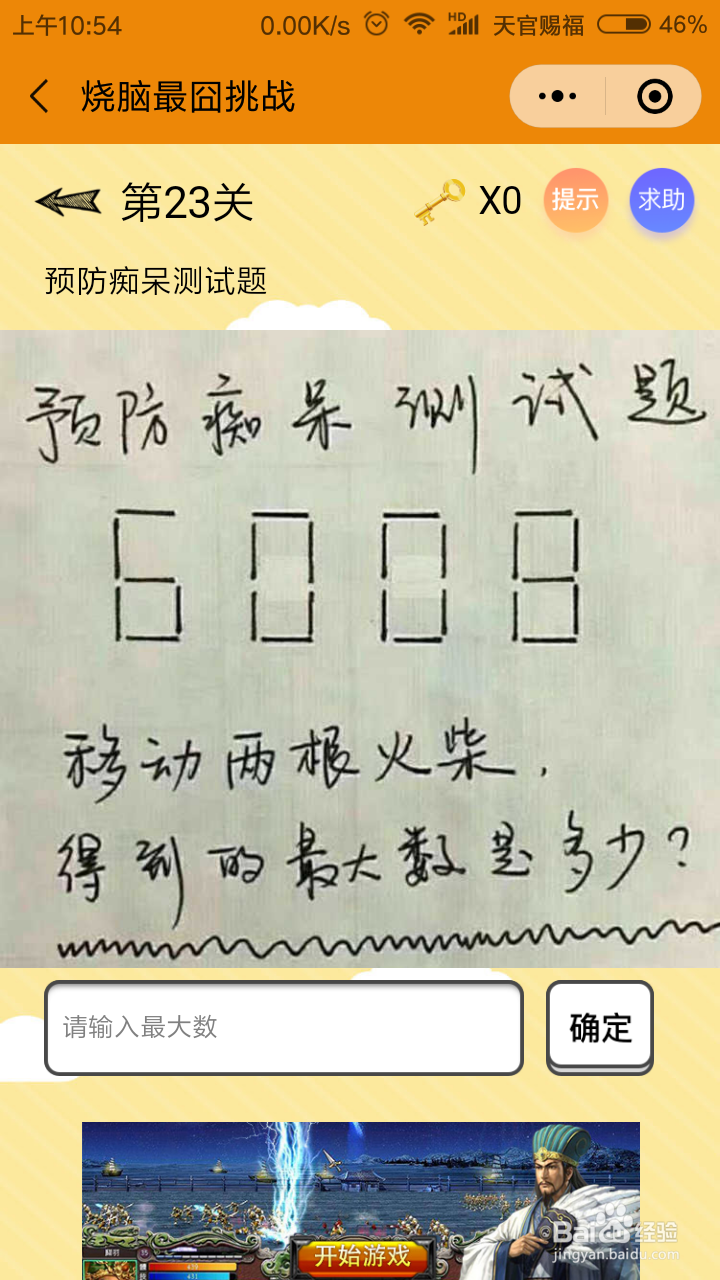 上午10:54 0.00K/s HD 天官赐福 46%
烧脑最囧挑战
第23关 X0 提示 求助
预防痴呆测试题
预防痴呆测试题
6008
移动两根火柴，
得到的最大数是多少？
请输入最大数 确定
开始游戏
Baidu经验
jingyan.baidu.com